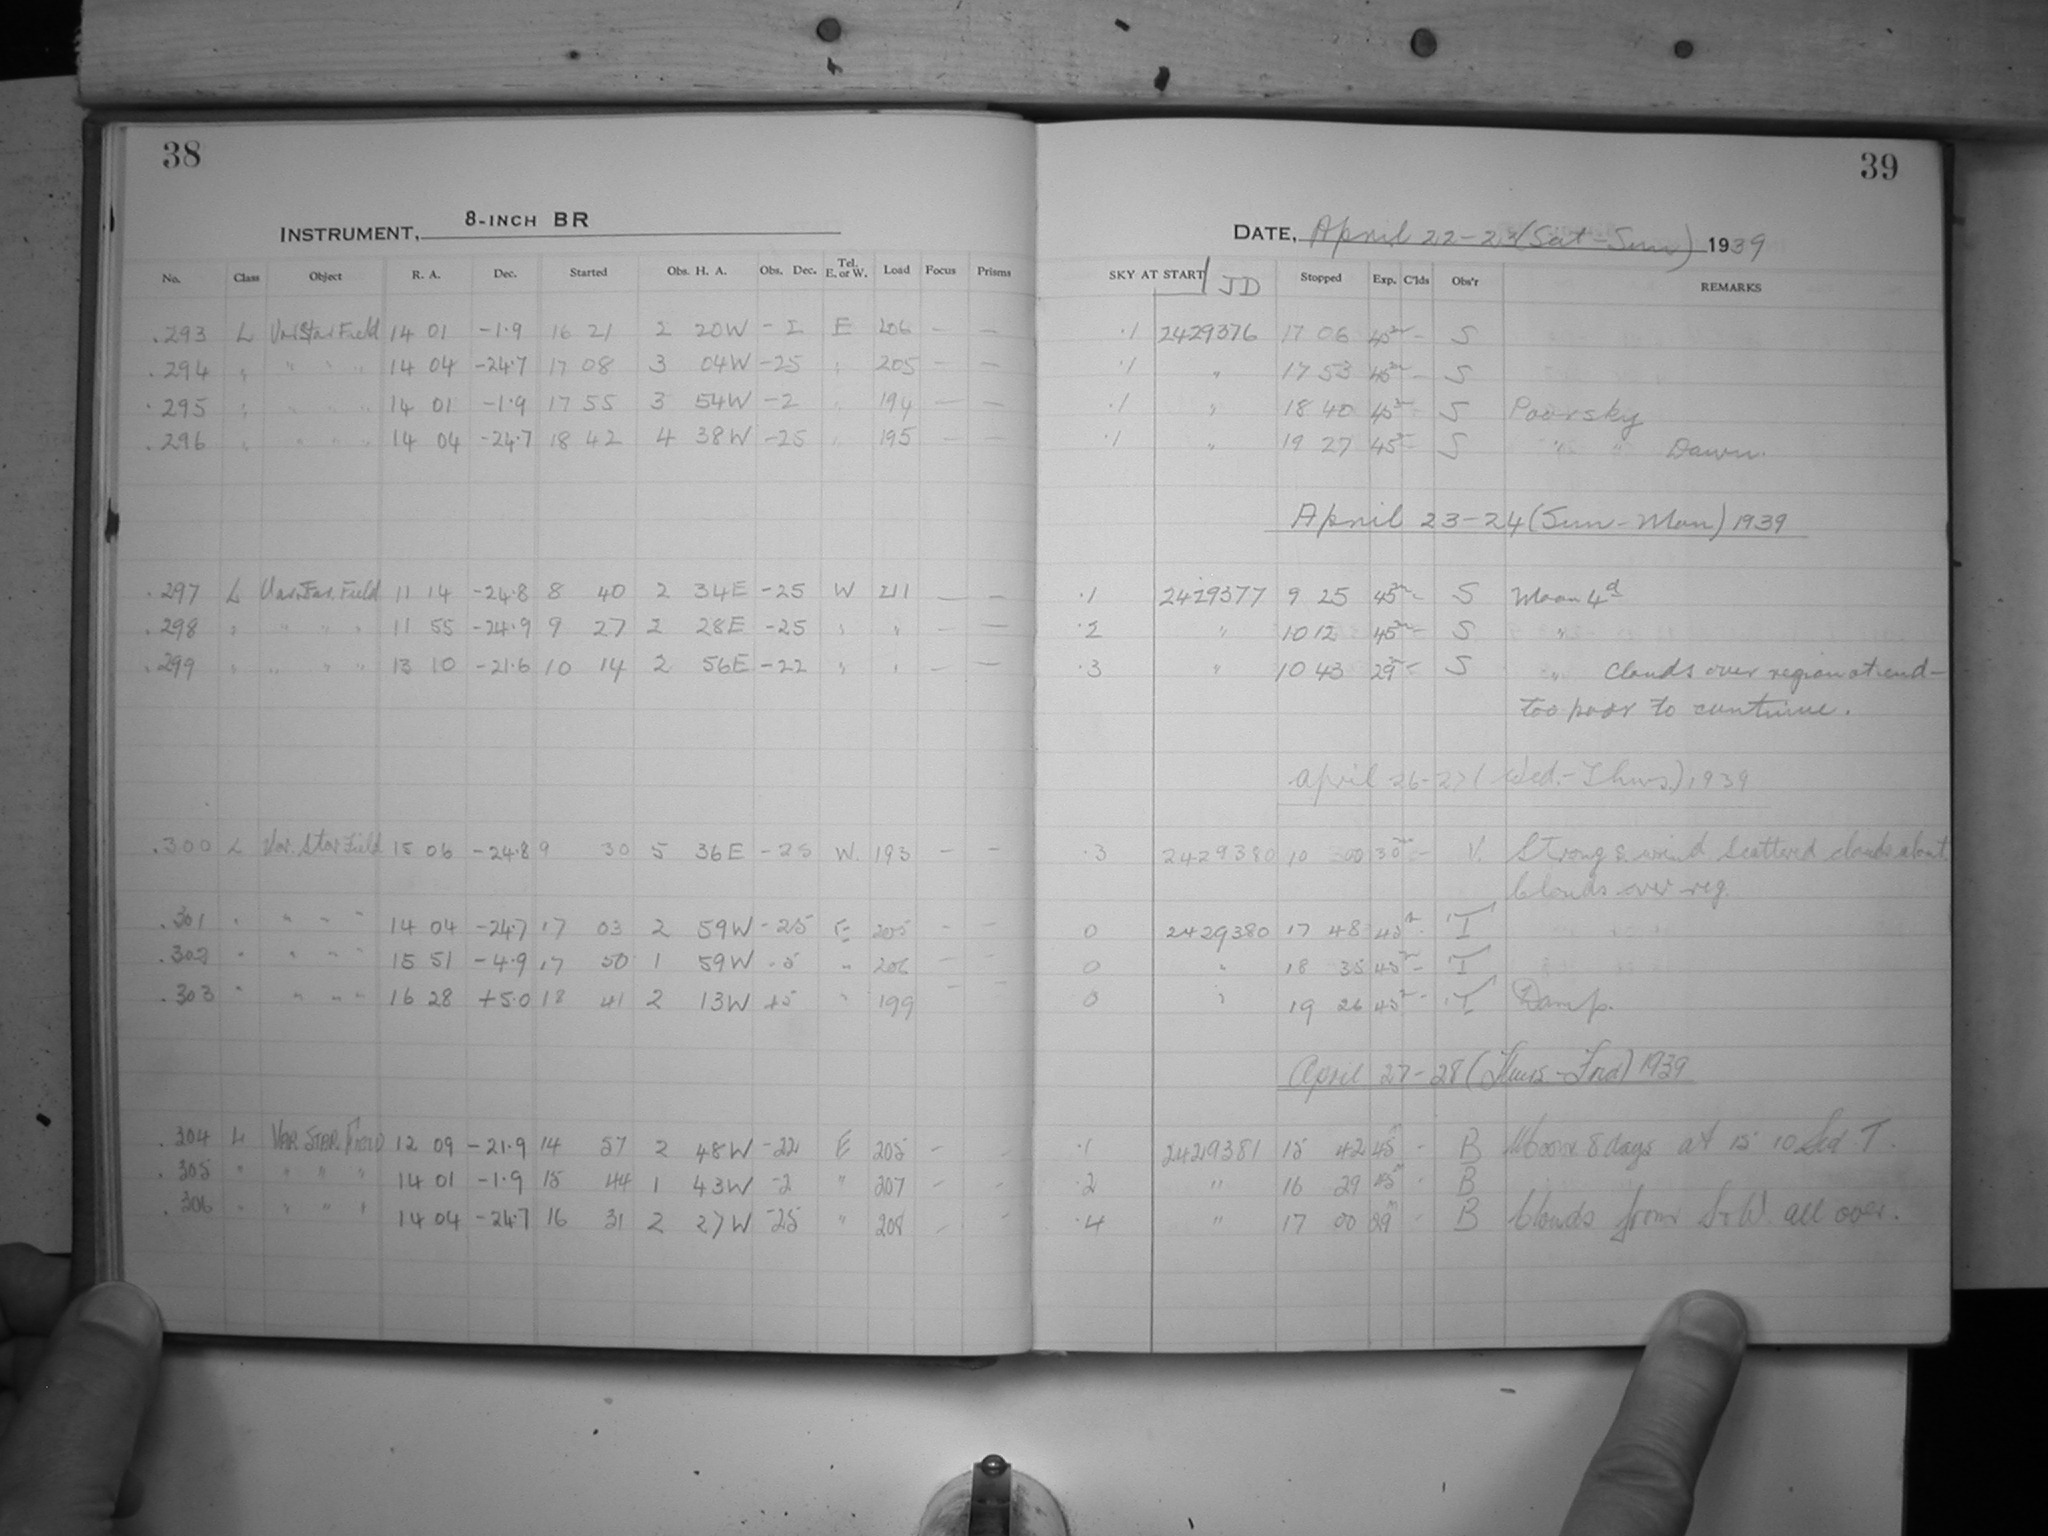 38
INSTRUMENT, 8-INCH BR
No. Class Object R. A. Dec. Started Obs. H. A. Obs. Dec. Tel. E. or W. Load Focus Prisms
.293 L Var Star Field 14 01 -1.9 16 21 2 20W -2 E 206 - -
.294 " " " " 14 04 -24.7 17 08 3 04W -25 " 205 - -
.295 " " " " 14 01 -1.9 17 55 3 54W -2 " 194 - -
.296 " " " " 14 04 -24.7 18 42 4 38W -25 " 195 - -
.297 L Var. Star. Field 11 14 -24.8 8 40 2 34E -25 W 211 - -
.298 " " " " 11 55 -24.9 9 27 2 28E -25 " " - -
.299 " " " " 13 10 -21.6 10 14 2 56E -22 " " - -
.300 L Var. Star Field 15 06 -24.8 9 30 5 36E -25 W. 193 - -
.301 " " " " 14 04 -24.7 17 03 2 59W -25 E 205 - -
.302 " " " " 15 51 -4.9 17 50 1 59W -5 " 206 - -
.303 " " " " 16 28 +5.0 18 41 2 13W +5 " 199 - -
.304 L VAR STAR FIELD 12 09 -21.9 14 57 2 48W -22 E 205 - -
.305 " " " " 14 01 -1.9 15 44 1 43W -2 " 207 - -
.306 " " " " 14 04 -24.7 16 31 2 27W -25 " 208 - -
39
DATE, April 22-23 (Sat-Sun) 1939
SKY AT START JD Stopped Exp. C'lds Obs'r REMARKS
.1 2429376 17 06 45m - S
.1 " 17 53 45m - S
.1 " 18 40 45m - S Poor sky
.1 " 19 27 45m - S " " Dawn.
April 23-24 (Sun-Mon) 1939
.1 2429377 9 25 45m - S Moon 4d
.2 " 10 12 45m - S "
.3 " 10 43 29m - S " Clouds over region at end-
too poor to continue.
April 26-27 (Wed.-Thurs.) 1939
.3 2429380 10 00 30m - V. Strong S. wind Scattered clouds about
Clouds over reg.
0 2429380 17 48 45m - T
0 " 18 35 45m - T
0 " 19 26 45m - T Damp.
April 27-28 (Thurs-Frid) 1939
.1 2429381 15 42 45m - B Moon 8 days at 15 10 Sid T.
.2 " 16 29 45m - B
.4 " 17 00 29m - B Clouds from S+W. all over.